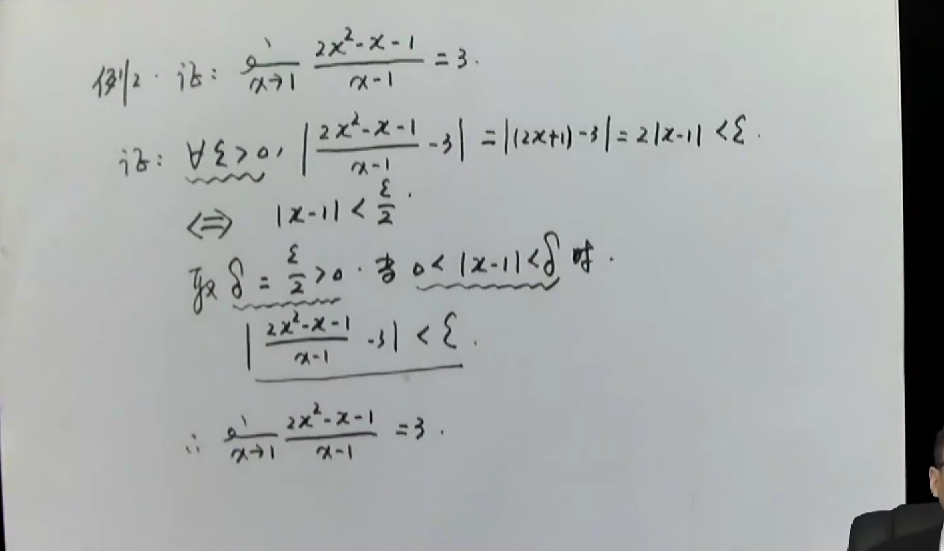 例2. 证: lim x→1 (2x²-x-1)/(x-1) = 3.
证: ∀ε>0, |(2x²-x-1)/(x-1) -3| = |(2x+1)-3| = 2|x-1| < ε.
⇔ |x-1| < ε/2.
取 δ = ε/2 > 0. 当 0 < |x-1| < δ 时.
|(2x²-x-1)/(x-1) -3| < ε.
∴ lim x→1 (2x²-x-1)/(x-1) = 3.